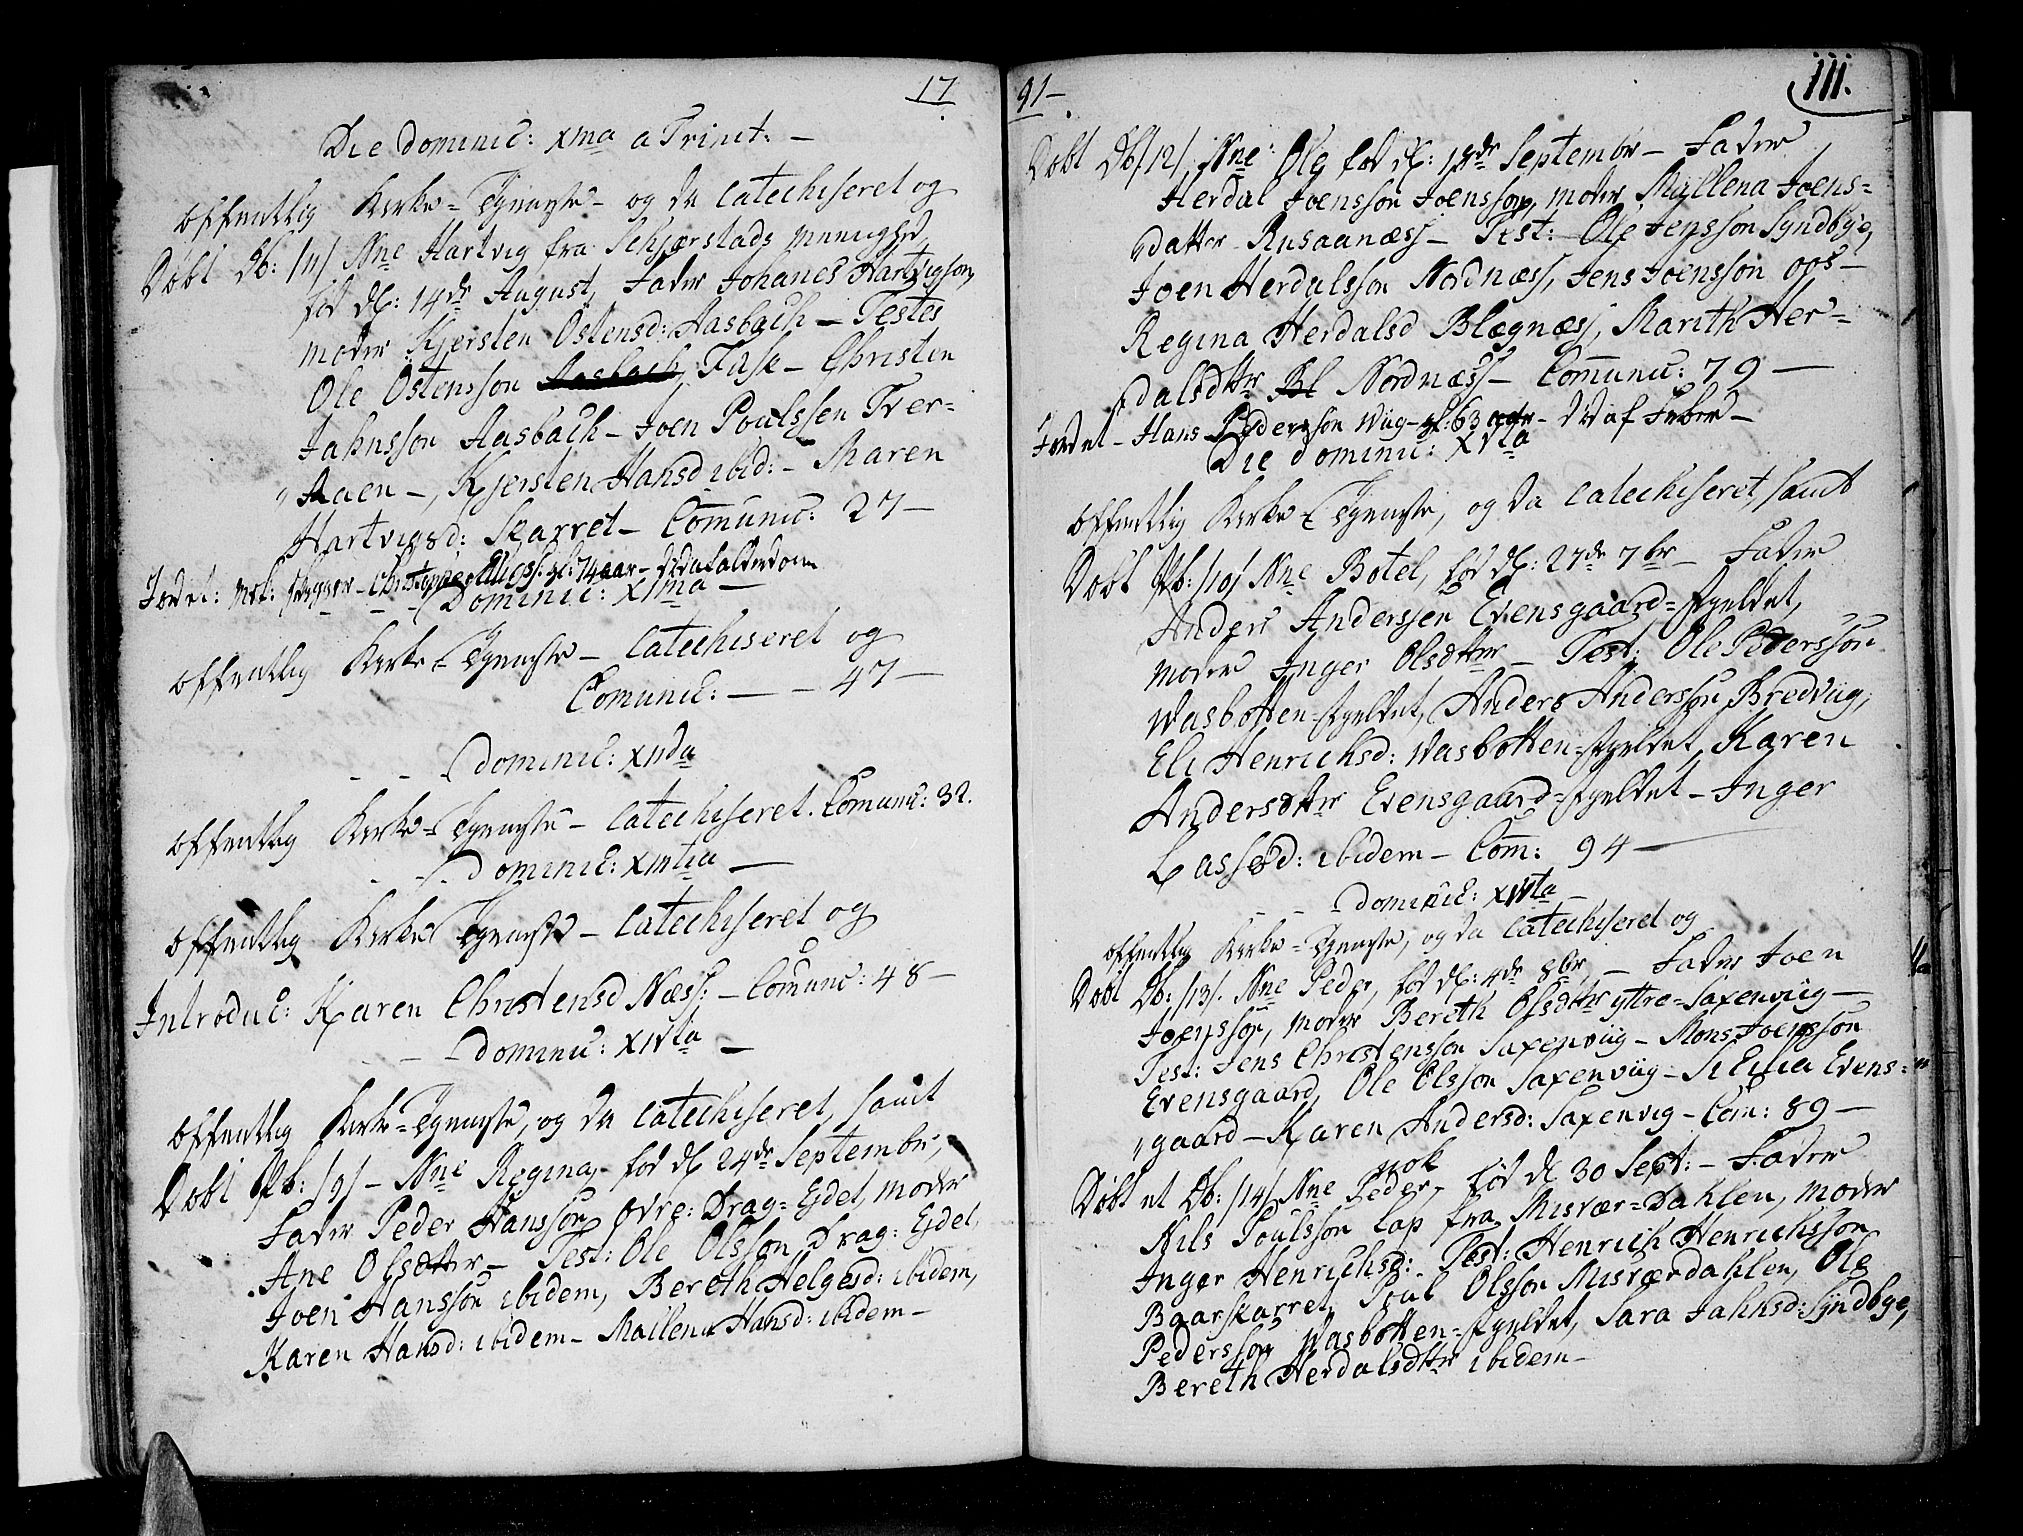 17
Die Dominic: Xma a Trinit: —
offentlig Kirke-Tjeneste — og da Catechiseret og
Døbt Db: /11/ Nne Hartvig fra Schjerstads Menighed,
fød d: 14de August, Fader Johanes Hartvigson,
moder Kjersten Ostensd: Aasbach — Testes
Ole Ostensson Aasbach, Fæse — Christen
Jahnsson Aasbach — Joen Poulssen Tver-
Aaen —, Kjersten Hansd ibid: — Maren
Hartvigsd: Skarret — Comunic: 27 —
Jordet: Christopher gl: 74 aar — Død af alderdom
— — — Dominic: XIma —
offentlig Kirke-Tjeneste — Catechiseret og
Comunic: — — 47 —
— — Dominic: XIIda
offentlig Kirke-Tjeneste — Catechiseret. Comunic: 32.
— — Dominic: XIIItia —
offentlig Kirke-Tjeneste — Catechiseret og
Introduc: Karen Christensd Næss: — Comunic: 48 —
— — Dominic: XIVta —
offentlig Kirke-Tjeneste, og da Catechiseret, samt
Døbt Pb: /9/ — Nne Regina, fød d 24de Septembr,
Fader Peder Hansson, øvre: Drag-Ejdet, moder
Ane Olsdttr — Test: Ole Olsson Drag: Ejdet,
Joen Hansson ibidem, Bereth Helgesd: ibidem,
Karen Hansd: ibidem — Mallena Hansd: ibidem —
91 —
111.
Døbt Db: /12/. Nne Ole fød d: 18de Septembr — Fader
Herdal Joensson Joensson, moder Mallena Joens-
datter Rusaanæss — Test: Ole Jensson Syndbye,
Joen Herdalsson Nordnæss, Jens Joensson og
Regina Herdalsd Blægnæss, Marith Her-
dalsdttr Bl Nordnæss — Comunic: 79 —
Jordet — Hans Pedersson Wiig — gl: 63 aar — Død af Feber —
Die Dominic: XVta
offentlig Kirke-Tjeneste, og da Catechiseret, samt
Døbt Pb: /10/ Nne Botel, fød d: 27de 7br — Fader
Anders Anderssen Evensgaard-fjeldet,
moder Inger Olsdttr — Test: Ole Pedersson
Wasbotten-fjeldet, Anders Andersson Bredviig,
Eli Henrichsd: Wasbotten-fjeldet, Karen
Andersdttr Evensgaard-fjeldet — Inger
Lassesd: ibidem — Com: 94 —
— — Dominic: XVIta —
offentlig Kirke-Tjeneste, og da Catechiseret og
Døbt Db: /13/. Nne Peder, fød d: 4de 8br, — Fader Joen
Joensson, moder Bereth Olsdttr yttre-Saxenviig —
Test: Jens Christensson Saxenviig — Mons Joensson
Evensgaard, Ole Olsson Saxenviig — Silicia Evens-
gaard — Karen Andersd: Saxenvig — Com: 89 —
Døbt nok et Db: /14/. Nne Peder, fød d 30 Sept: — Fader
Nils Poulsson Lap fra Misvær-Dahlen, moder
Inger Henrichsd: Test: Henrich Henrichsson
Baarskarret, Poul Olsson Misværdahlen, Ole
Pedersson Wasbotten-fjeldet, Sara Jahnsd: Syndbye,
Bereth Herdalsdttr ibidem —